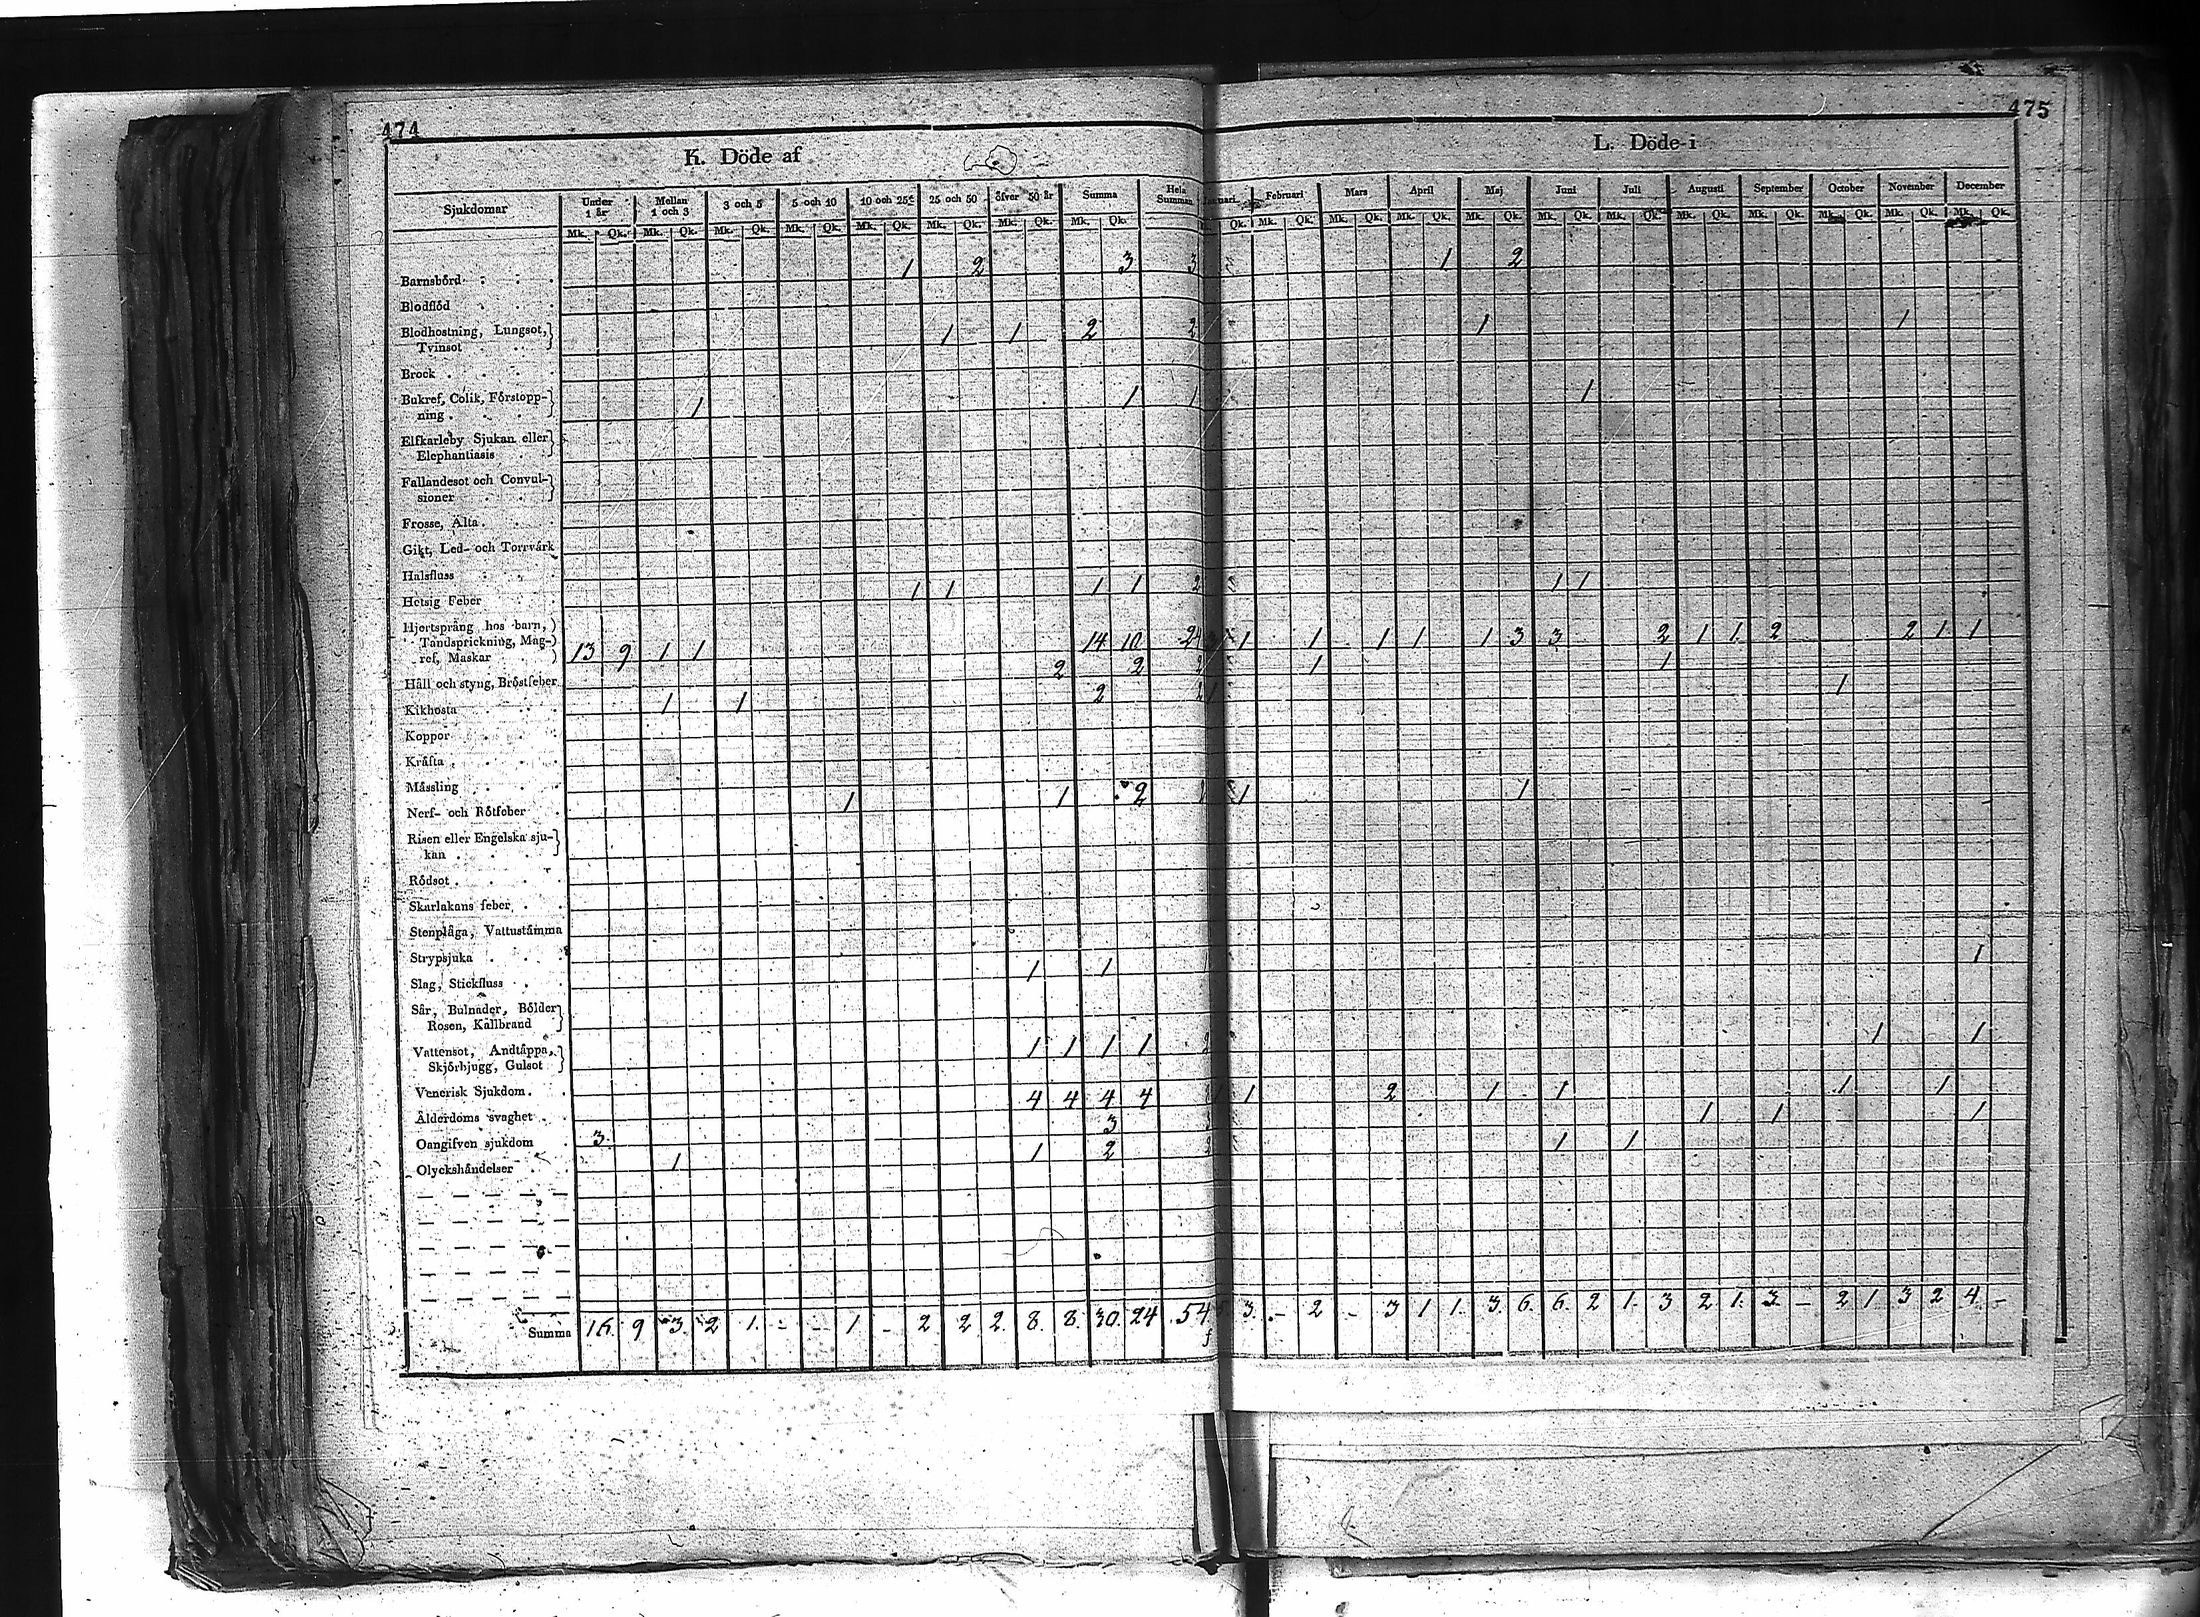 474
475
K. Döde af
L. Döde i
Sjukdomar Under 1 år Mellan 1 och 3 3 och 5 5 och 10 10 och 25 25 och 50 öfver 50 år Summa Hela Summan Februari Mars April Maj Juni Juli Augusti September October November December
Mk. Qk. Mk. Qk. Mk. Qk. Mk. Qk. Mk. Qk. Mk. Qk. Mk. Qk. Mk. Qk. Qk. Mk. Qk. Mk. Qk. Mk. Qk. Mk. Qk. Mk. Qk. Mk. Qk. Mk. Qk. Mk. Qk. Mk. Qk. Mk. Qk. Mk. Qk.
Barnsbörd 1 2 3 3 1 2
Blodflöd
Blodhostning, Lungsot,
Tvinsot 1 1 2 2 1 1
Brock
Bukref, Colik, Förstopp-
ning 1 1 1 1
Elfkarleby Sjukan eller
Elephantiasis
Fallandesot och Convul-
sioner
Frosse, Älta
Gikt, Led- och Torrvärk
Halsfluss
Hetsig Feber 1 1 1 1 2 1 1
Hjertsprång hos barn,
Tandsprickning, Mag-
ref, Maskar 13 9 1 1 14 10 24 3 1 1 1 1 1 3 3 2 1 1 2 2 1 1
Håll och styng, Bröstfeber 2 2 2 1 1
Kikhosta 1 1 2 1 1
Koppor
Kräfta
Mässling
Nerf- och Rötfeber 1 1 2 1 1
Risen eller Engelska sju-
kan
Rödsot
Skarlakans feber
Stenplåga, Vattustämma
Strypsjuka
Slag, Stickfluss 1 1 1
Sår, Bulnader, Bölder
Rosen, Kallbrand
Vattensot, Andtäppa,
Skjörbjugg, Gulsot 1 1 1 1 2 1 1
Venerisk Sjukdom
Ålderdoms svaghet 4 4 4 4 1 1 2 1 1 1 1
Oangifven sjukdom 3 3 1 1 1
Olyckshändelser 1 1 2 2 1 1
Summa 16 9 3 2 1 - - 1 - 2 2 2 8 8 30 24 54 3 - 2 - 3 1 1 3 6 6 2 1 3 2 1 3 - 2 1 3 2 4 -